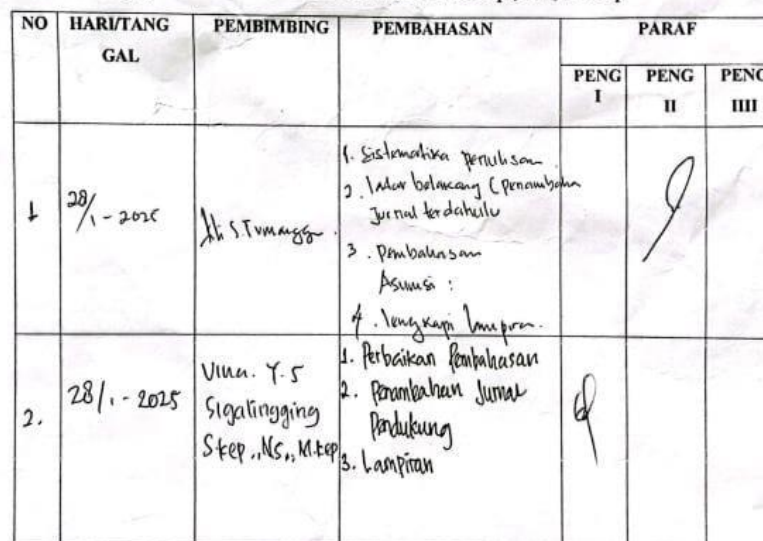 NO HARI/TANG GAL PEMBIMBING PEMBAHASAN PARAF
PENG I PENG II PENG IIII
1 28/1 - 2025
1. Sistematika penulisan
2. latar belakang (penambahan
Jurnal terdahulu
3. Pembahasan
Asumsi :
4. lengkapi lampiran.
2. 28/1 - 2025
Vina. Y. S
Sigalingging
Skep.,Ns., M.kep
1. Perbaikan Pembahasan
2. Penambahan Jurnal
Pendukung
3. Lampiran